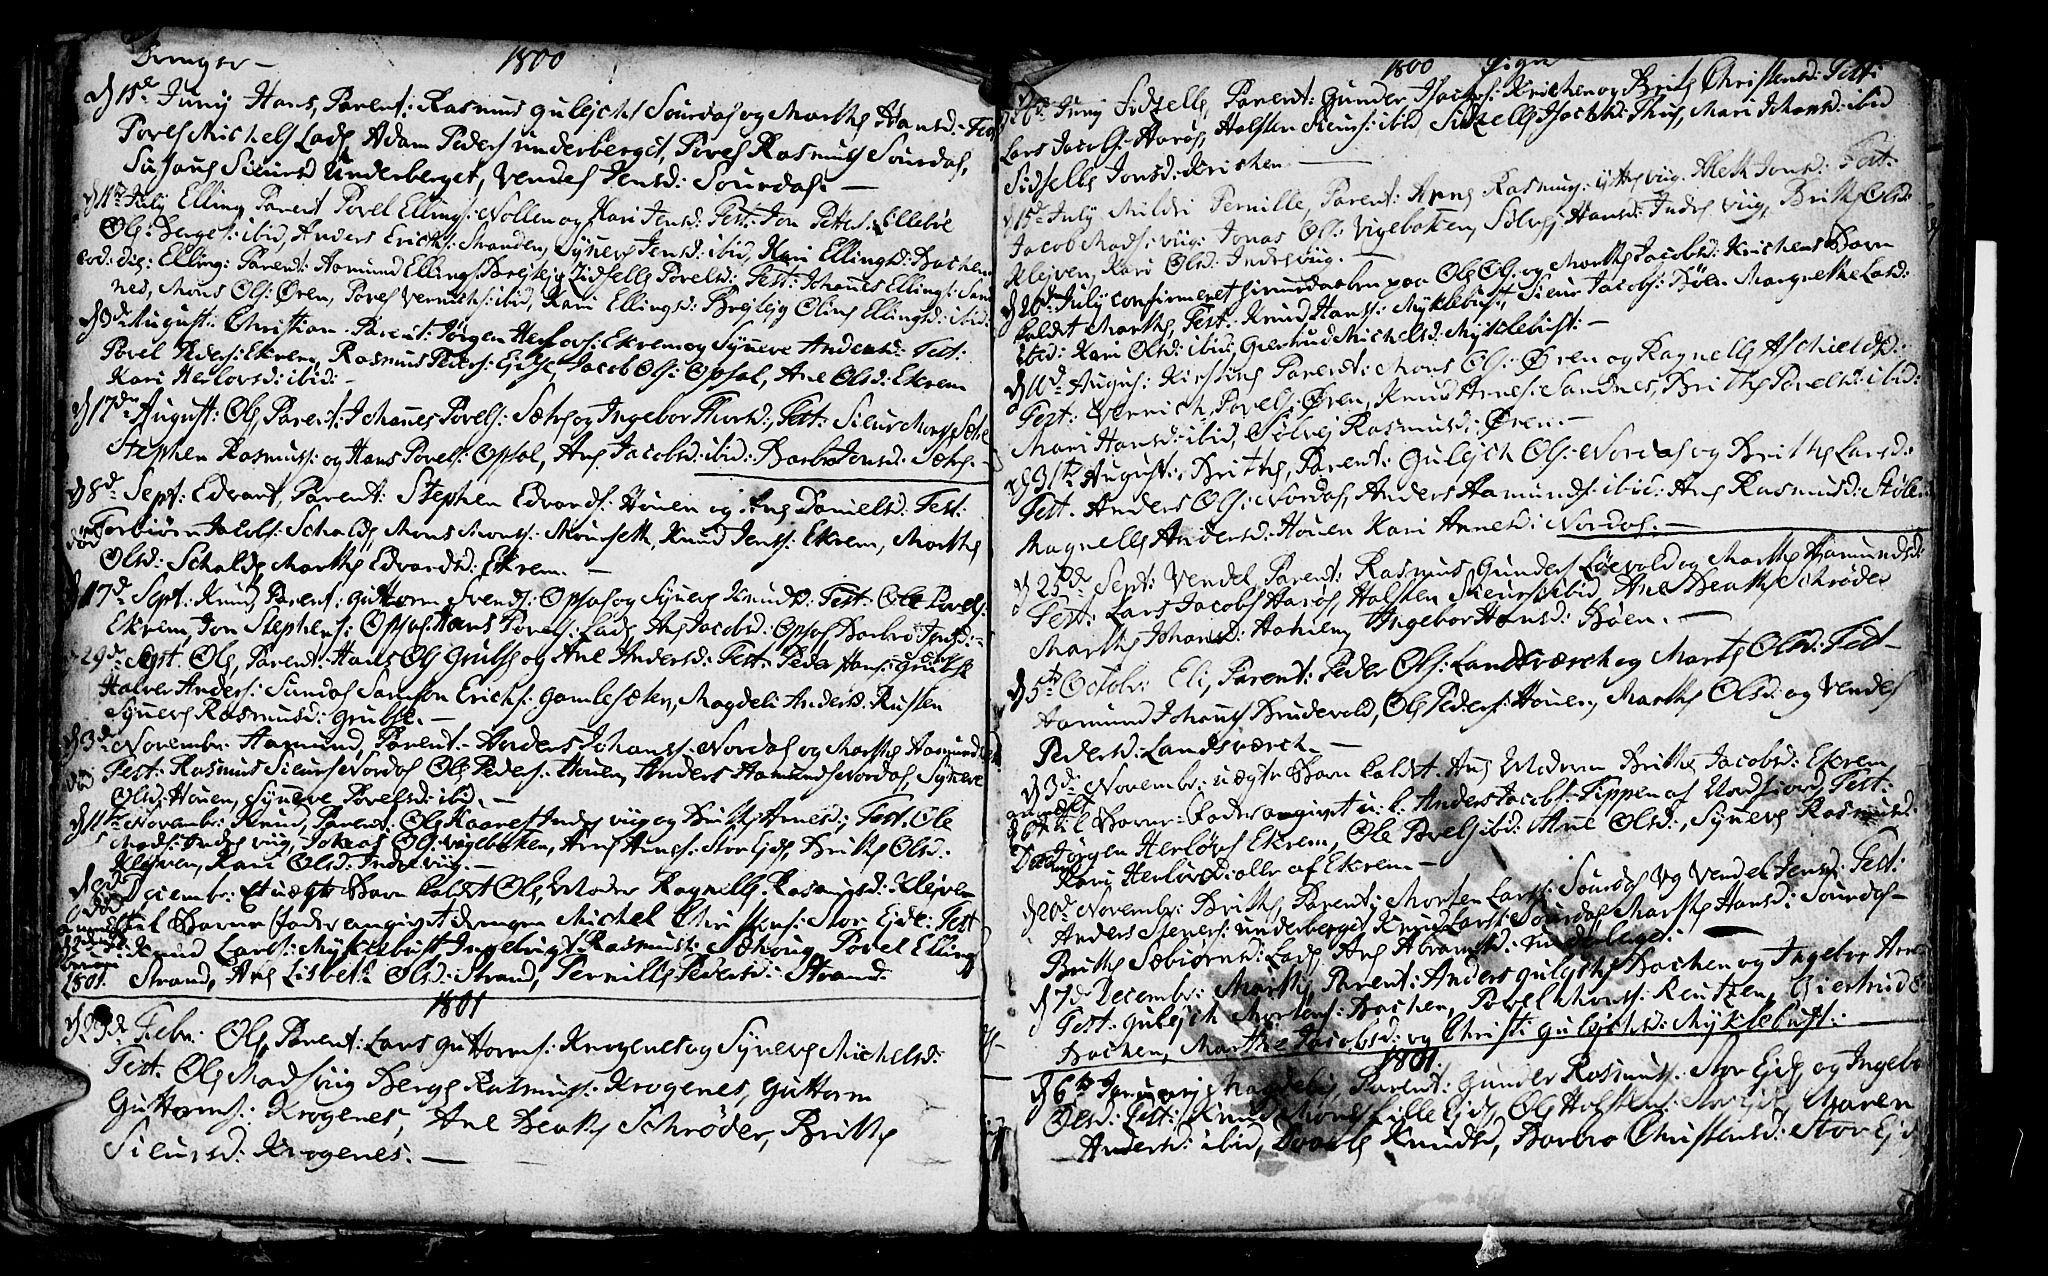 Drenger —
1800
d 15de Junij Hans, Parent: Rasmus Gulichs Sourdal og Marthe Hansd: Test
Povel Michels Lade, Adam Peders underberget, Povel Rasmus Sourdal,
Susans Siursd Underberget, Vendel Jensd: Sourdal. —
d 11te July Elling Parent Povel Ellings: Nollen og Kari Jensd: Test: Jon Petters: Lillebøe
Ole Berges: ibid, Anders Erichs: Stranden, Synevs Jensd: ibid, Kari Ellingsd: Bachen
eod: die: Elling: Parent: Aamund Ellings Brejlejg Zidselle Povelsd: Test: Johanes Ellings: Sand
nes, Mons Ols: Øren, Povel Vernichs: ibid, Kari Ellingsd: Brejlejg Oline Ellingsd: ibid:
d 3de August: Christian. Parent: Jørgen Herlovs: Ekrem og Synneve Andersd: Test:
Povel Peders: Ekrem, Rasmus Peders: Ejde, Jacob Ols: Opsal, Ane Olsd: Ekrem
Kari Herlovsd: ibid: —
d 17de August: Ole, Parent: Johanes Povels: Sæthe og Ingebor Thorsd: Test: Siur Mons Sæthe
Stephen Rasmuss: og Hans Povels: Opsal, Ane Jacobsd: ibid: Barbro Jensd: Sæthe. —
d 8de Sept: Edvart, Parent: Stephen Edvards: Houen og Ane Danielsd: Test:
død Torbiørn Jacobs: Schalde, Mons Mons: Mourseth, Knud Jens: Ekrem, Marthe
Olsd: Schalde Marthe Edvardsd: Ekrem. —
d 17de Sept: Knud, Parent: Guttorm Svends: Opsal og Synevs Knudsd: Test: Ole Povels:
Ekrem, Jon Stephens: Opsal, Hans Povels: Lade, Ane Jacobsd: Opsal Barbro Jensd: —
29de Sept. Ole, Parent: Hans Ols Grubse og Ane Andersd: Test: Peder Hans: Grubse
Halvor Anders: Sundal Samson Erichs: Gamlesæten, Magdeli Andersd: Rusten
Synevs Rasmusd: Grubse. —
d 3de Novembr: Aamund, Parent. Anders Johans: Nordal og Marthe Aamundsd
død Test: Rasmus Siurs Nordal Ole Peders: Houen, Anders Aamunds Nordal, Syneve
Olsd: Houen, Syneve Povelsd: ibid. —
d 11te Novembr: Knud, Parent: Ole Kaares Indre viig og Brithe Arnesd: Test. Ole
Mads: Indre viig, Johnas Ols: Vigebakken, Arne Arnes: Stor Ejde, Brithe Olsd:
Klejven, Kari Olsd: Indre viig. —
d Deciembr: Et uægte Barn kaldet Ole, Moder Ragnelle Rasmusd: Klejven
til Barne fader angivet drengen Michel Christens: Stor Ejde: Test
Knud Lars: Myklebust Ingebrigt Rasmus: Povel Elling
1801. Strand, Ane Lisbeth Olsd: Strand, Pernille Pedersd: Strand
1801
d 23de Febr: Ole, Parent: Lars Guttorms: Krogenes og Synevs Michelsd:
Test. Ole Mads viig Berge Rasmus: Krogenes, Guttorm
Guttorms: Krogenes, Ane Beathe Schrøder, Brithe
Siursd: Krogenes. —
1800 Piger
Junij Sidselle, Parent: Gunder Isachs: Krichen og Brite Christensd: Test:
Lars Jacobs: Harøe, Halsten Siurs: ibid, Sidselle Isachsd: Thus, Mari Johansd: ibid
Sidselle Jonsd: Krichen —
d 15de July Mildri Pernille, Parent: Arne Rasmus: Ytre viig Aleth Jonsd: Test:
Jacob Mads: viig: Jonas Ols: Vigebakken, Sølvej Hansd: Indre viig, Brithe Olsd:
Klejven, Kari Olsd: Indreviig. —
d 20de July confirmeret hiemedaaben paa Ole Ols: og Marthe Jacobsd: Krichens Barn
kaldet Marthe, Test: Knud Hans: Myklebust, Siur Jacobs: Bøen Margrethe Larsd:
ibid: Kari Olsd: ibid, Giertrud Michelsd: Myklebust: —
d 10de August: Kirstine Parent: Mons Ols: Øren og Ragnelle Aschieldsd:
Test: Vernich Povels: Øren, Knud Arnes: Sandnes, Brithe Povelsd: ibid:
Mari Hansd: ibid, Sølvej Rasmusd: Øren. —
d 31te August: Brithe, Parent: Gulich Ols: Nordal og Brithe Larsd:
Test. Anders Ols: Nordal, Anders Aamunds: ibid: Ane Rasmusd: Støle
Magnelle Andersd: Houen Kari Annesd: Nordal. —
d 23de Sept: Vendel, Parent: Rasmus Gunders Løevold og Marthe Aamundsd:
Test: Lars Jacobs Harøe, Halsten Siurs: ibid, Ane Beathe Schrøder
Marthe Johansd: Hahien, Ingebor Hansd: Bøen. —
d 5te Octobr: Eli, Parent: Peder Ols: Landsværch og Marte Olsd: Test —
Aamund Johans Brudevold, Ole Peders: Houen, Marthe Olsd: og Vendel
Pedersd: Landsværch. —
d 3de Novembr: uægte Barn kaldt. Ane Moderen Brithe Jacobsd: Ekrem
til Barne-Fader angivet u: k: Anders Jacobs: Tippen af Nordfiord, Test:
Jørgen Herlovs Ekrem, Ole Povels ibid: Ane Olsd:, Synevs Rasmusd:
Kari Herlovsd: alle af Ekrem —
d 20de Novembr: Brithe, Parent: Morten Lars: Sourdal og Vendel Jensd: Test:
Anders Steners: underberget Knud Lars: Sourdal Marthe Hansd: Sourdal —
Brithe Sæbiørnsd: Lade, Ane Abramsd: —
d 7de Decembr: Marthe, Parent: Anders Gulichs Bachen og Ingebor Arne
Test: Gulich Mortens: Bachen, Povel Mons: Reutzen, Giertrud
Bachen, Marthe Jacobsd: og Christi Gulichsd: Myklebust: —
1801
d 6te Januarij Magdeli, Parent: Gunder Rasmus: Stor Ejde og Ingebor
Olsd: Test: Knud Mons Lille Ejde, Ole Halstens: Stor Ejde Maren
Andersd: ibid, Knudsd, Barbro Christensd: Stor Ejd